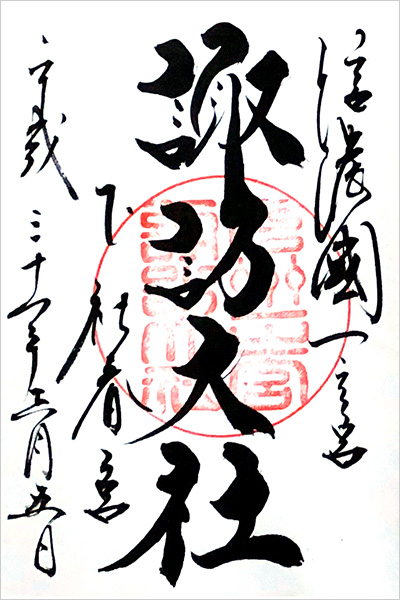 信濃國一之宮
諏訪大社
下社春宮
平成三十一年三月五日